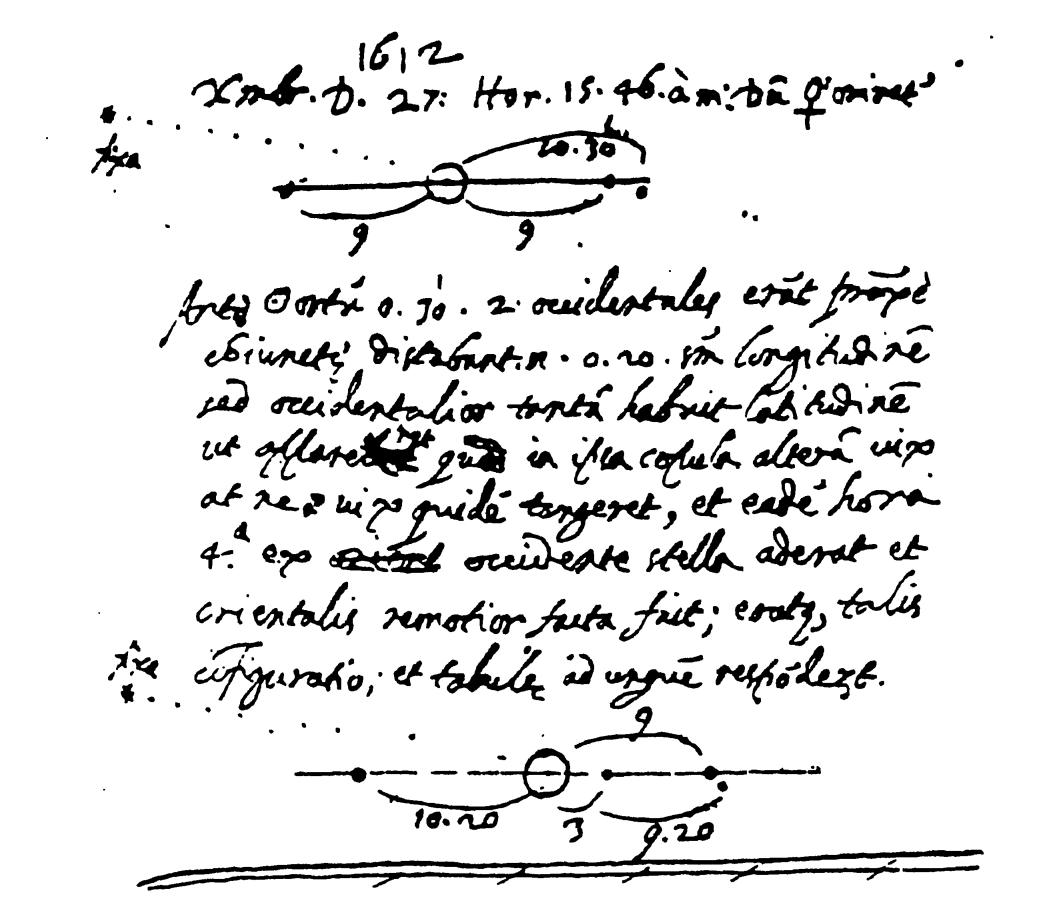 1612
Xmbr. D. 27: Hor. 15. 46. à m: Dũ ☿ oriret
fixa
10.30
9 9
Ante ☉ ortũ 0. 30. 2 occidentales erãt prope
cõiunctę distabant.n. 0.20. sm̃ longitudinẽ
sed occidentalior tantã habuit latitudinẽ
ut in ipsa copula alterã vix
at ne vix quidẽ tangeret, et eadẽ hora
4.ª ex occidente stella aderat et
orientalis remotior facta fuit; eratq, talis
cõfiguratio; et tabulę ad unguẽ respõdẽt.
fixa
9
10.20 3 9.20